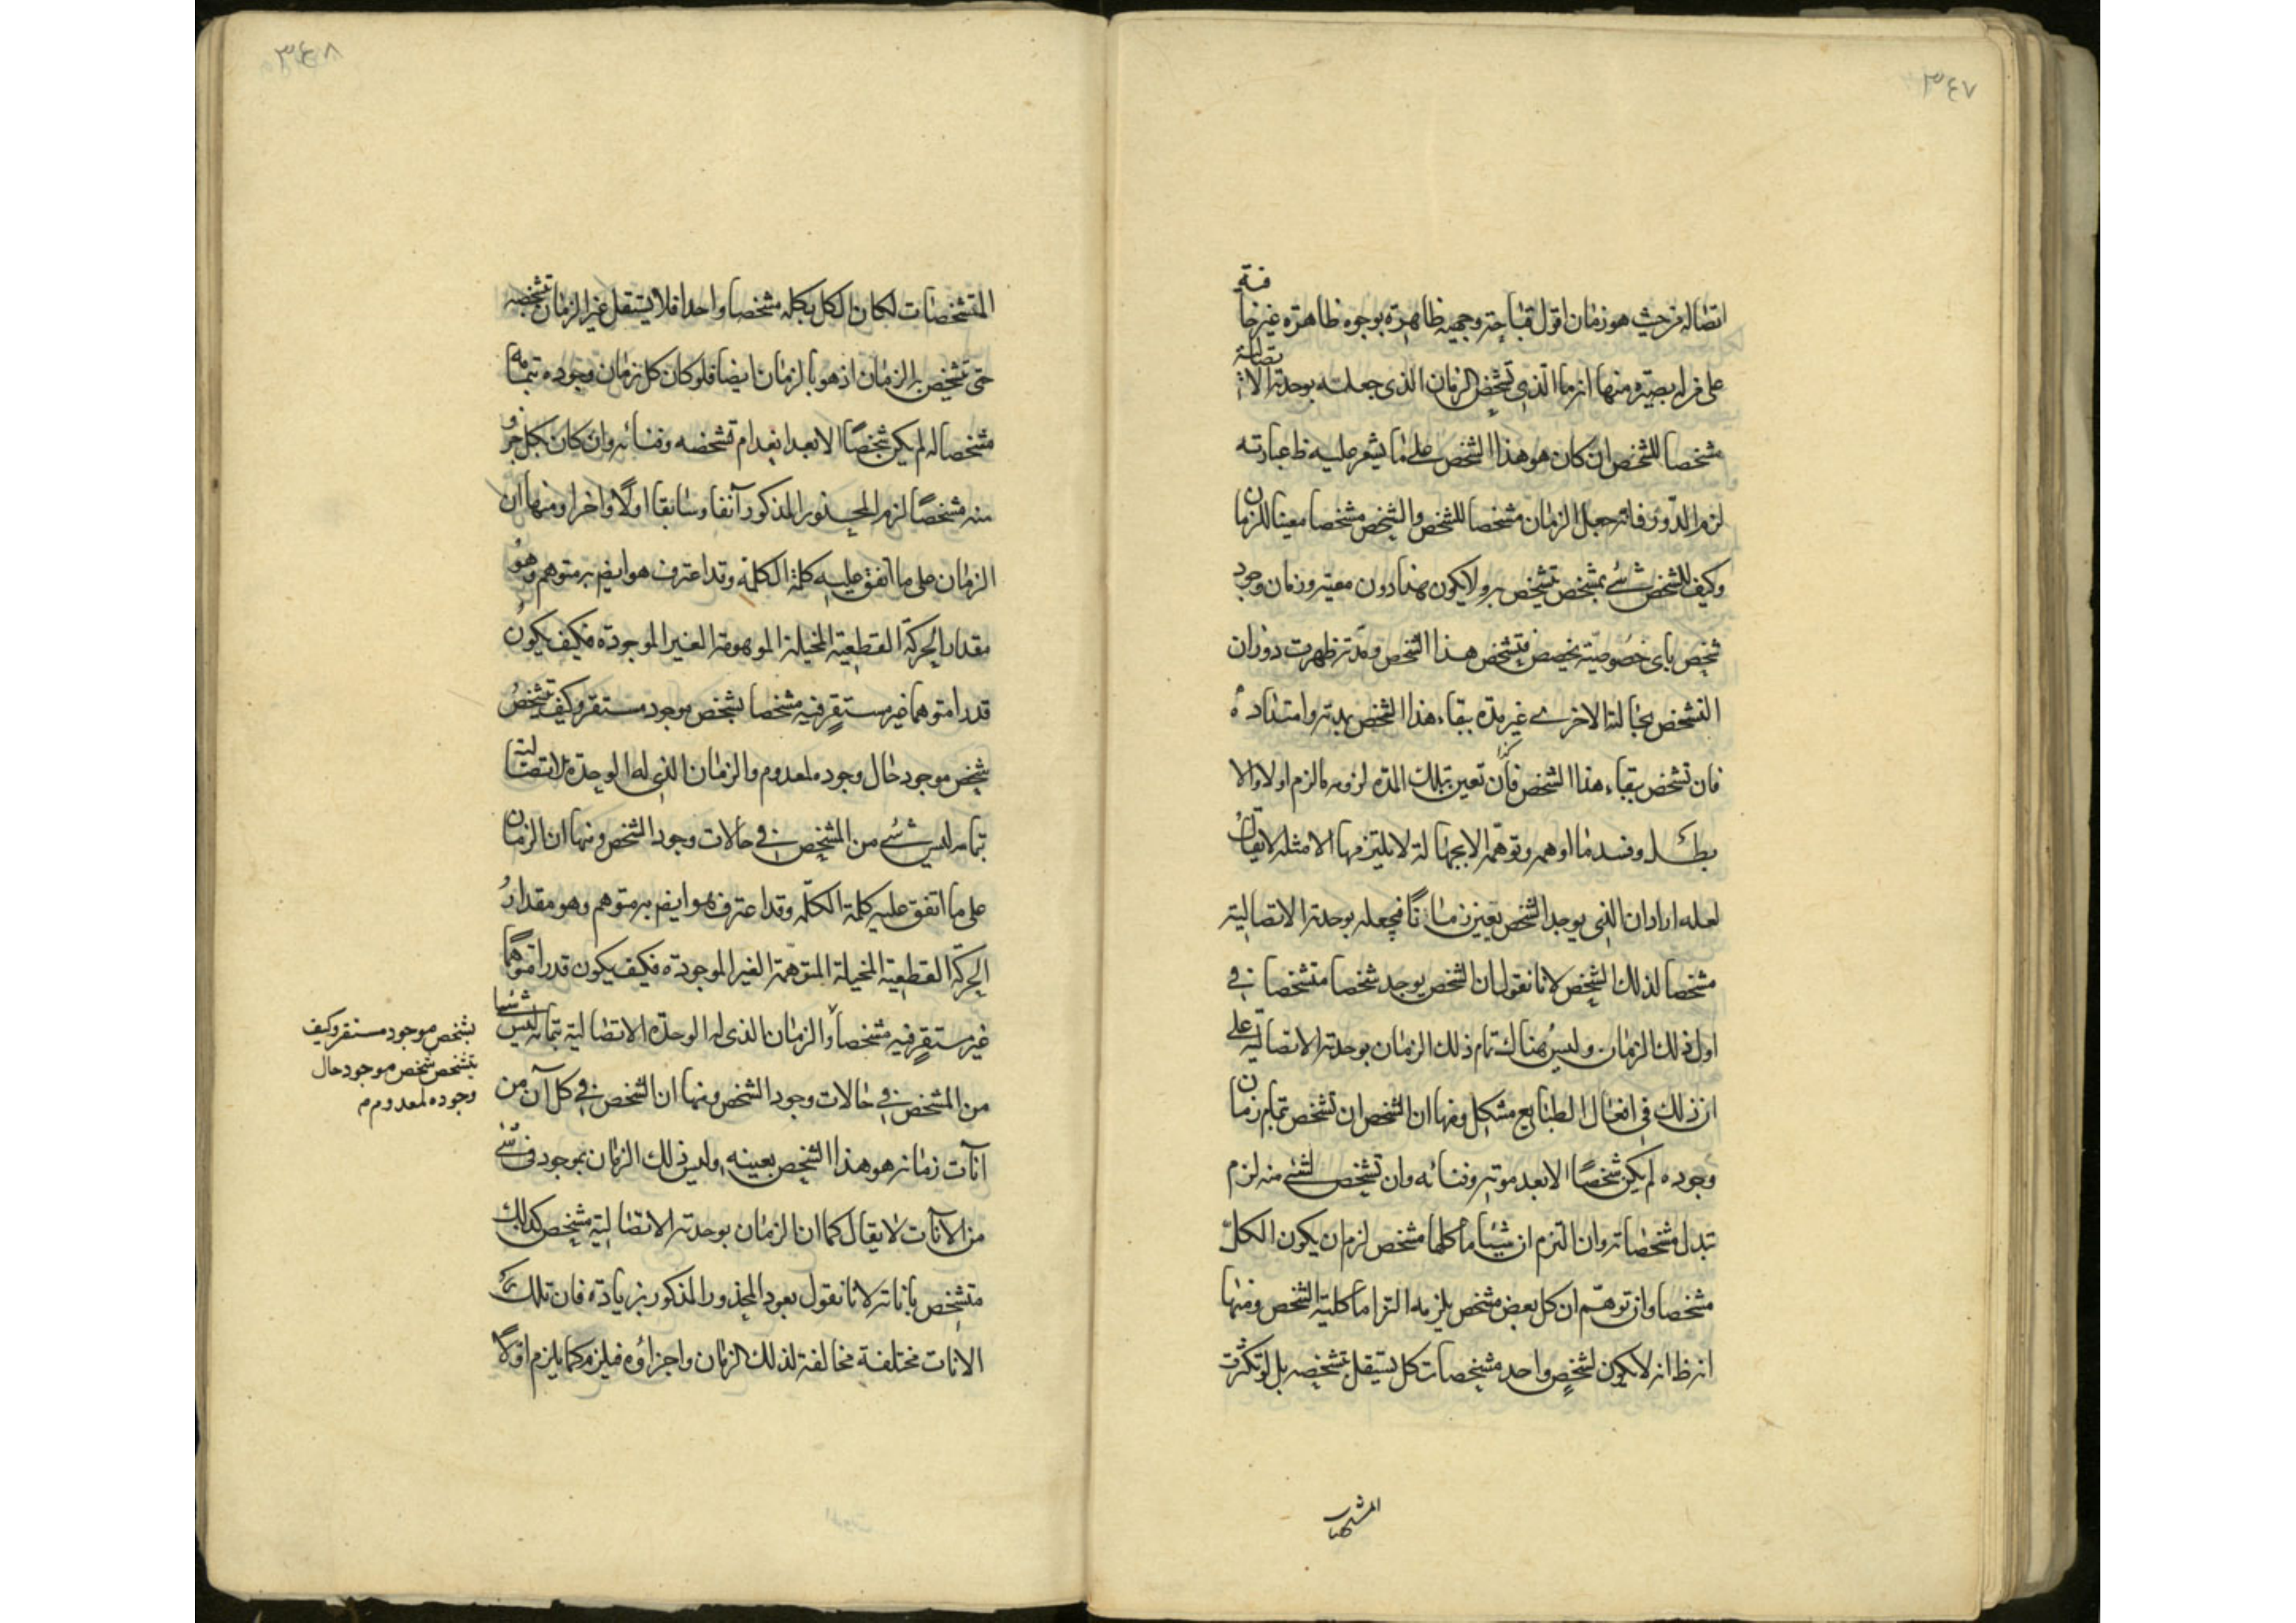 ٣٤٧
اتصاله من حيث هو زمان اقول قباحته وجميه ظاهرة بوجوه ظاهرة غير خافية
على من له بصيرة منها انه ما الذى تشخص الزمان الذى جعلته بوحدته الاتصالية
مشخصا للشخص ان كان هو هذا الشخص على ما يشعر عليه ظ عبارته
لزم الدور فانه جعل الزمان مشخصا للشخص والشخص مشخصا معينا للزمان
وكيف للشخص شئ بمشخص تشخص به ولا يكون بهذا دون معيته وزمان وجود
شخص باى خصوصيته يخصص فتشخص هذا الشخص ومدته ظهرت دوران
التشخص بحاله الاخرى غير مدة بقاء هذا الشخص بمدته وامتداده
فان تشخص ببقاء هذا الشخص كذا فان تعين بتلك المدة لزومه مالزم اولا والا
بطل وفسد ما اوهمه وتوهمه الابجهالة لا يلتزمها الا مثله لا يقال
لعله اراد ان الذى يوجد الشخص يعين زمانا فيجعله بوحدته الاتصالية
مشخصا لذلك الشخص لانا نقول ان الشخص يوجد شخصا متشخصا فى
اول ذلك الزمان وليس هناك تمام ذلك الزمان بوحدته الاتصالية على
ان ذلك فى افعال الطبايع مشكل ومنها ان الشخص ان تشخص بتمام زمان
وجوده لم يكن شخصًا الا بعد موته وفنائه وان تشخص بشئ منه لزم
تبدل مشخصاته وان التزم ان شيئا ما كلها مشخص لزم ان يكون الكل
مشخصا وان توهم ان كل بعض مشخص يلزمه التزاما كلية الشخص ومنها
انه ظ انه لا يكون لشخص واحد مشخصات كل يستقل بتشخيصه بل لو تكثرت
المشخصات
٣٤٨
المتشخصات لكان الكل بكله مشخصا واحدا فلا يستقل غير الزمان بتشخيصه
حتى تشخص به الزمان اذ هو بالزمان ايضا فلو كان كل زمان وجوده بتمامه
مشخصا له لم يكن شخصًا الا بعد انعدام تشخصه وفنائه وان كان بكل جزو
منه مشخصًا لزم المحذور المذكور آنفا وسابقا اولًا واخرا ومنها ان
الزمان على ما اتفق عليه كلمة الكلمة وقد اعترف هو ايض به متوهم وهو
مقدار الحركة القطعية المخيلة الموهومة الغير الموجودة فكيف يكون
قدرا متوهما غير مستقر فيه مشخصا بشخص موجود مستقر وكيف تشخص
شخص موجود حال وجوده لمعدوم والزمان الذى له الوحدة الاتصالية
بتمامه ليس شئ من المشخص فى حالات وجود الشخص ومنها ان الزمان
على ما اتفق عليه كلمة الكلمة وقد اعترف هو ايض به متوهم وهو مقدار
الحركة القطعية المخيلة المتوهمة الغير الموجودة فكيف يكون قدرا متوهما
غير مستقر فيه مشخصا والزمان الذى له الوحدة الاتصالية بتمامه ليس شيئا
بشخص موجود مستقر وكيف
يتشخص شخص موجود حال
وجوده لمعدوم م
من المشخص فى حالات وجود الشخص ومنها ان الشخص فى كل آن من
آنات زمانه هو هذا الشخص بعينه وليس ذلك الزمان بموجود فى شئ
من الآنات لا يقال كما ان الزمان بوحدته الاتصالية مشخص كذلك
متشخص باناته لانا نقول يعود المحذور المذكور بزيادة فان تلك
الانات مختلفة مخالفة لذلك الزمان واجزاؤه فيلزم كما يلزم اولًا